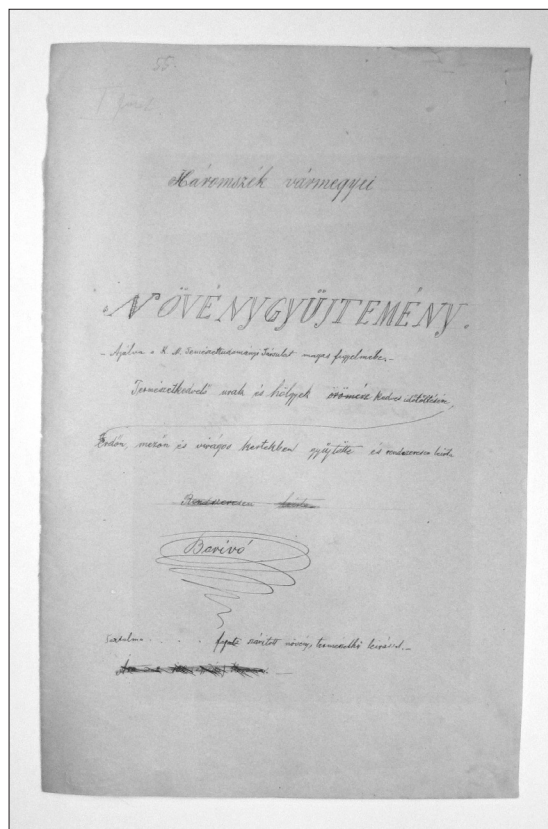 55.
Háromszék vármegyei
NÖVÉNYGYŰJTEMÉNY.
- Ajálva a K. M. Természettudományi Társulat magas figyelmébe, -
Természetkedvelő urak és hölgyek örömész kedves időtöltésére,
Erdőn, mezőn és virágos kertekben gyűjtötte és rendszeresen leírta
Rendszeresen leírta
Borivó
Tartalma . . . . . szárított növény, termesztett leírással. -